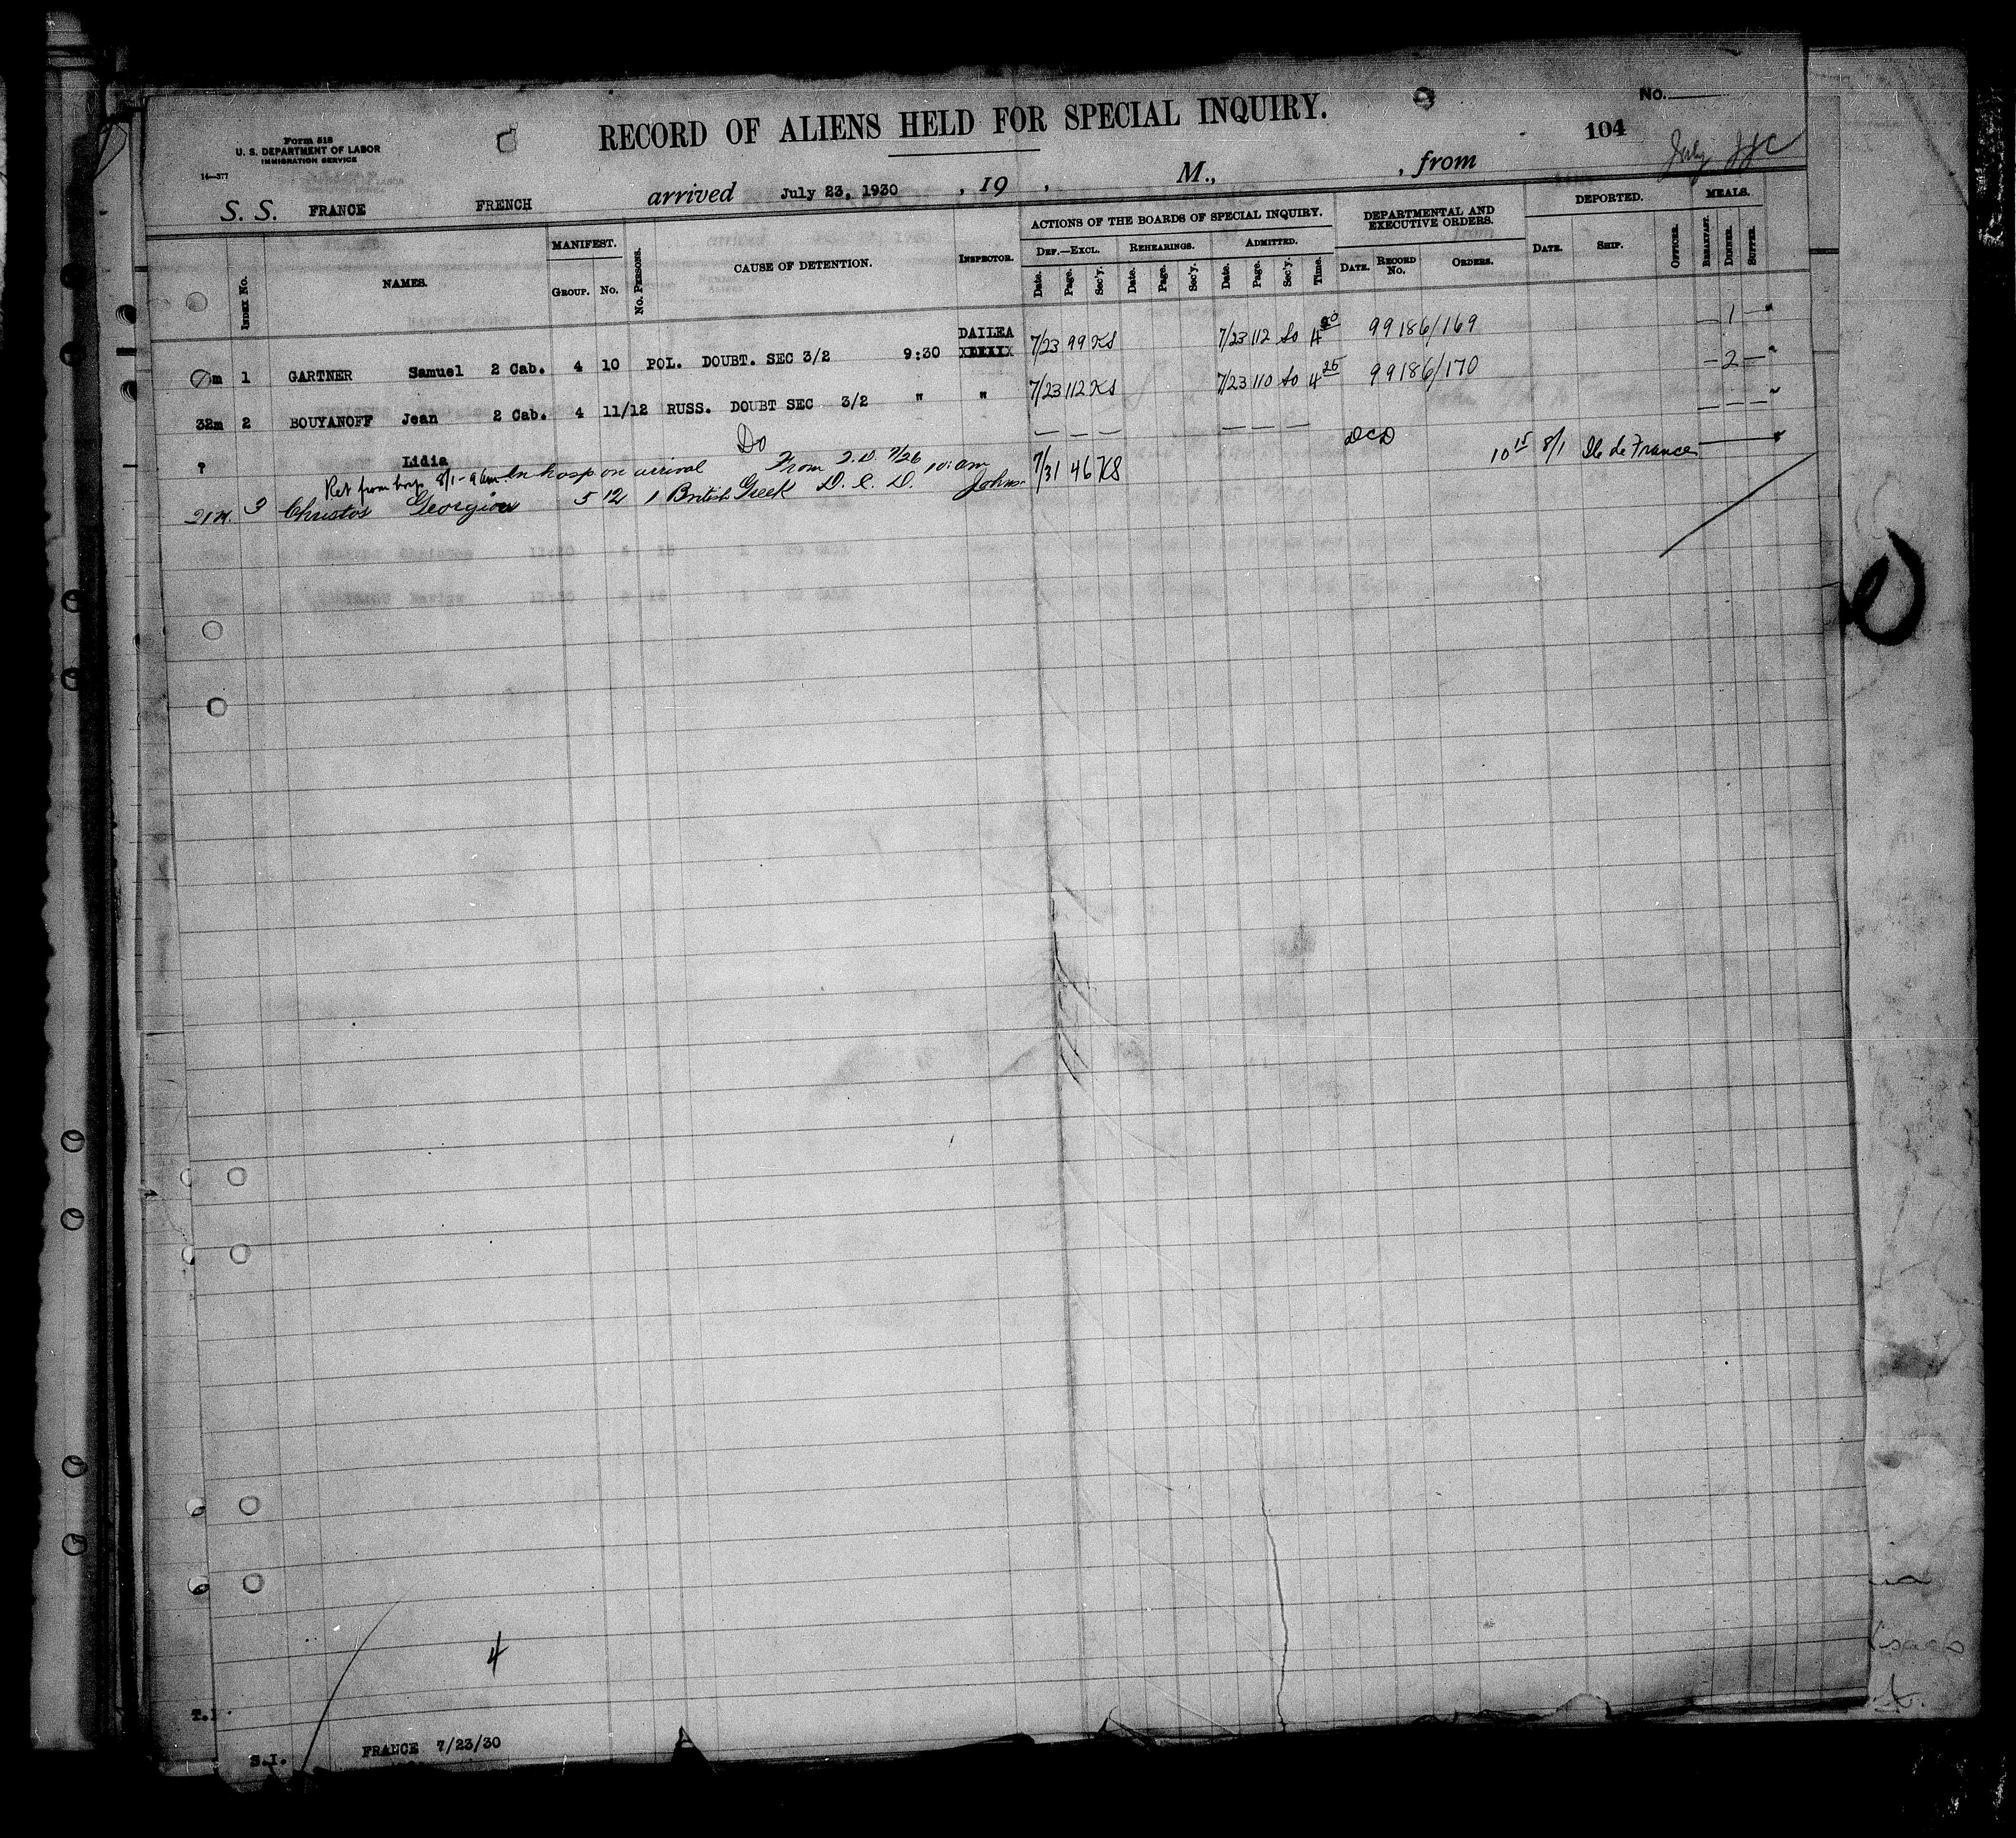 No.
RECORD OF ALIENS HELD FOR SPECIAL INQUIRY.
104
Form 518
U. S. DEPARTMENT OF LABOR
IMMIGRATION SERVICE
14—377
S. S. FRANCE FRENCH arrived July 23, 1930 , 19 , M., , from
INDEX No. NAMES. MANIFEST. GROUP. No. No. PERSONS. CAUSE OF DETENTION. INSPECTOR. ACTIONS OF THE BOARDS OF SPECIAL INQUIRY. DEF.—EXCL. Date. Page. Sec'y. REHEARINGS. Date. Page. Sec'y. ADMITTED. Date. Page. Sec'y. Time. DEPARTMENTAL AND EXECUTIVE ORDERS. DATE. RECORD No. ORDERS. DEPORTED. DATE. SHIP. OFFICER. MEALS. BREAKFAST. DINNER. SUPPER.
DAILEA
m 1 GARTNER Samuel 2 Cab. 4 10 POL. DOUBT. SEC 3/2 9:30 7/23 99 KS 7/23 112 So 99186/169 — 1 — "
32m 2 BOUYANOFF Jean 2 Cab. 4 11/12 RUSS. DOUBT SEC 3/2 " " 7/23 112 KS 7/23 110 So 4 25 99186/170 — 2 — "
? Lidia Do — — — — — — — — — — "
Ret from hosp 8/1 - 9am In hosp on arrival From T.D. 7/26 10:am
21m. 3 Christos Georgiou 5 12 1 British Greek D. C. D. Johns. 7/31 46 KS DCD 10 15 8/1 Ile de France
4
T.I.
S.I. FRANCE 7/23/30